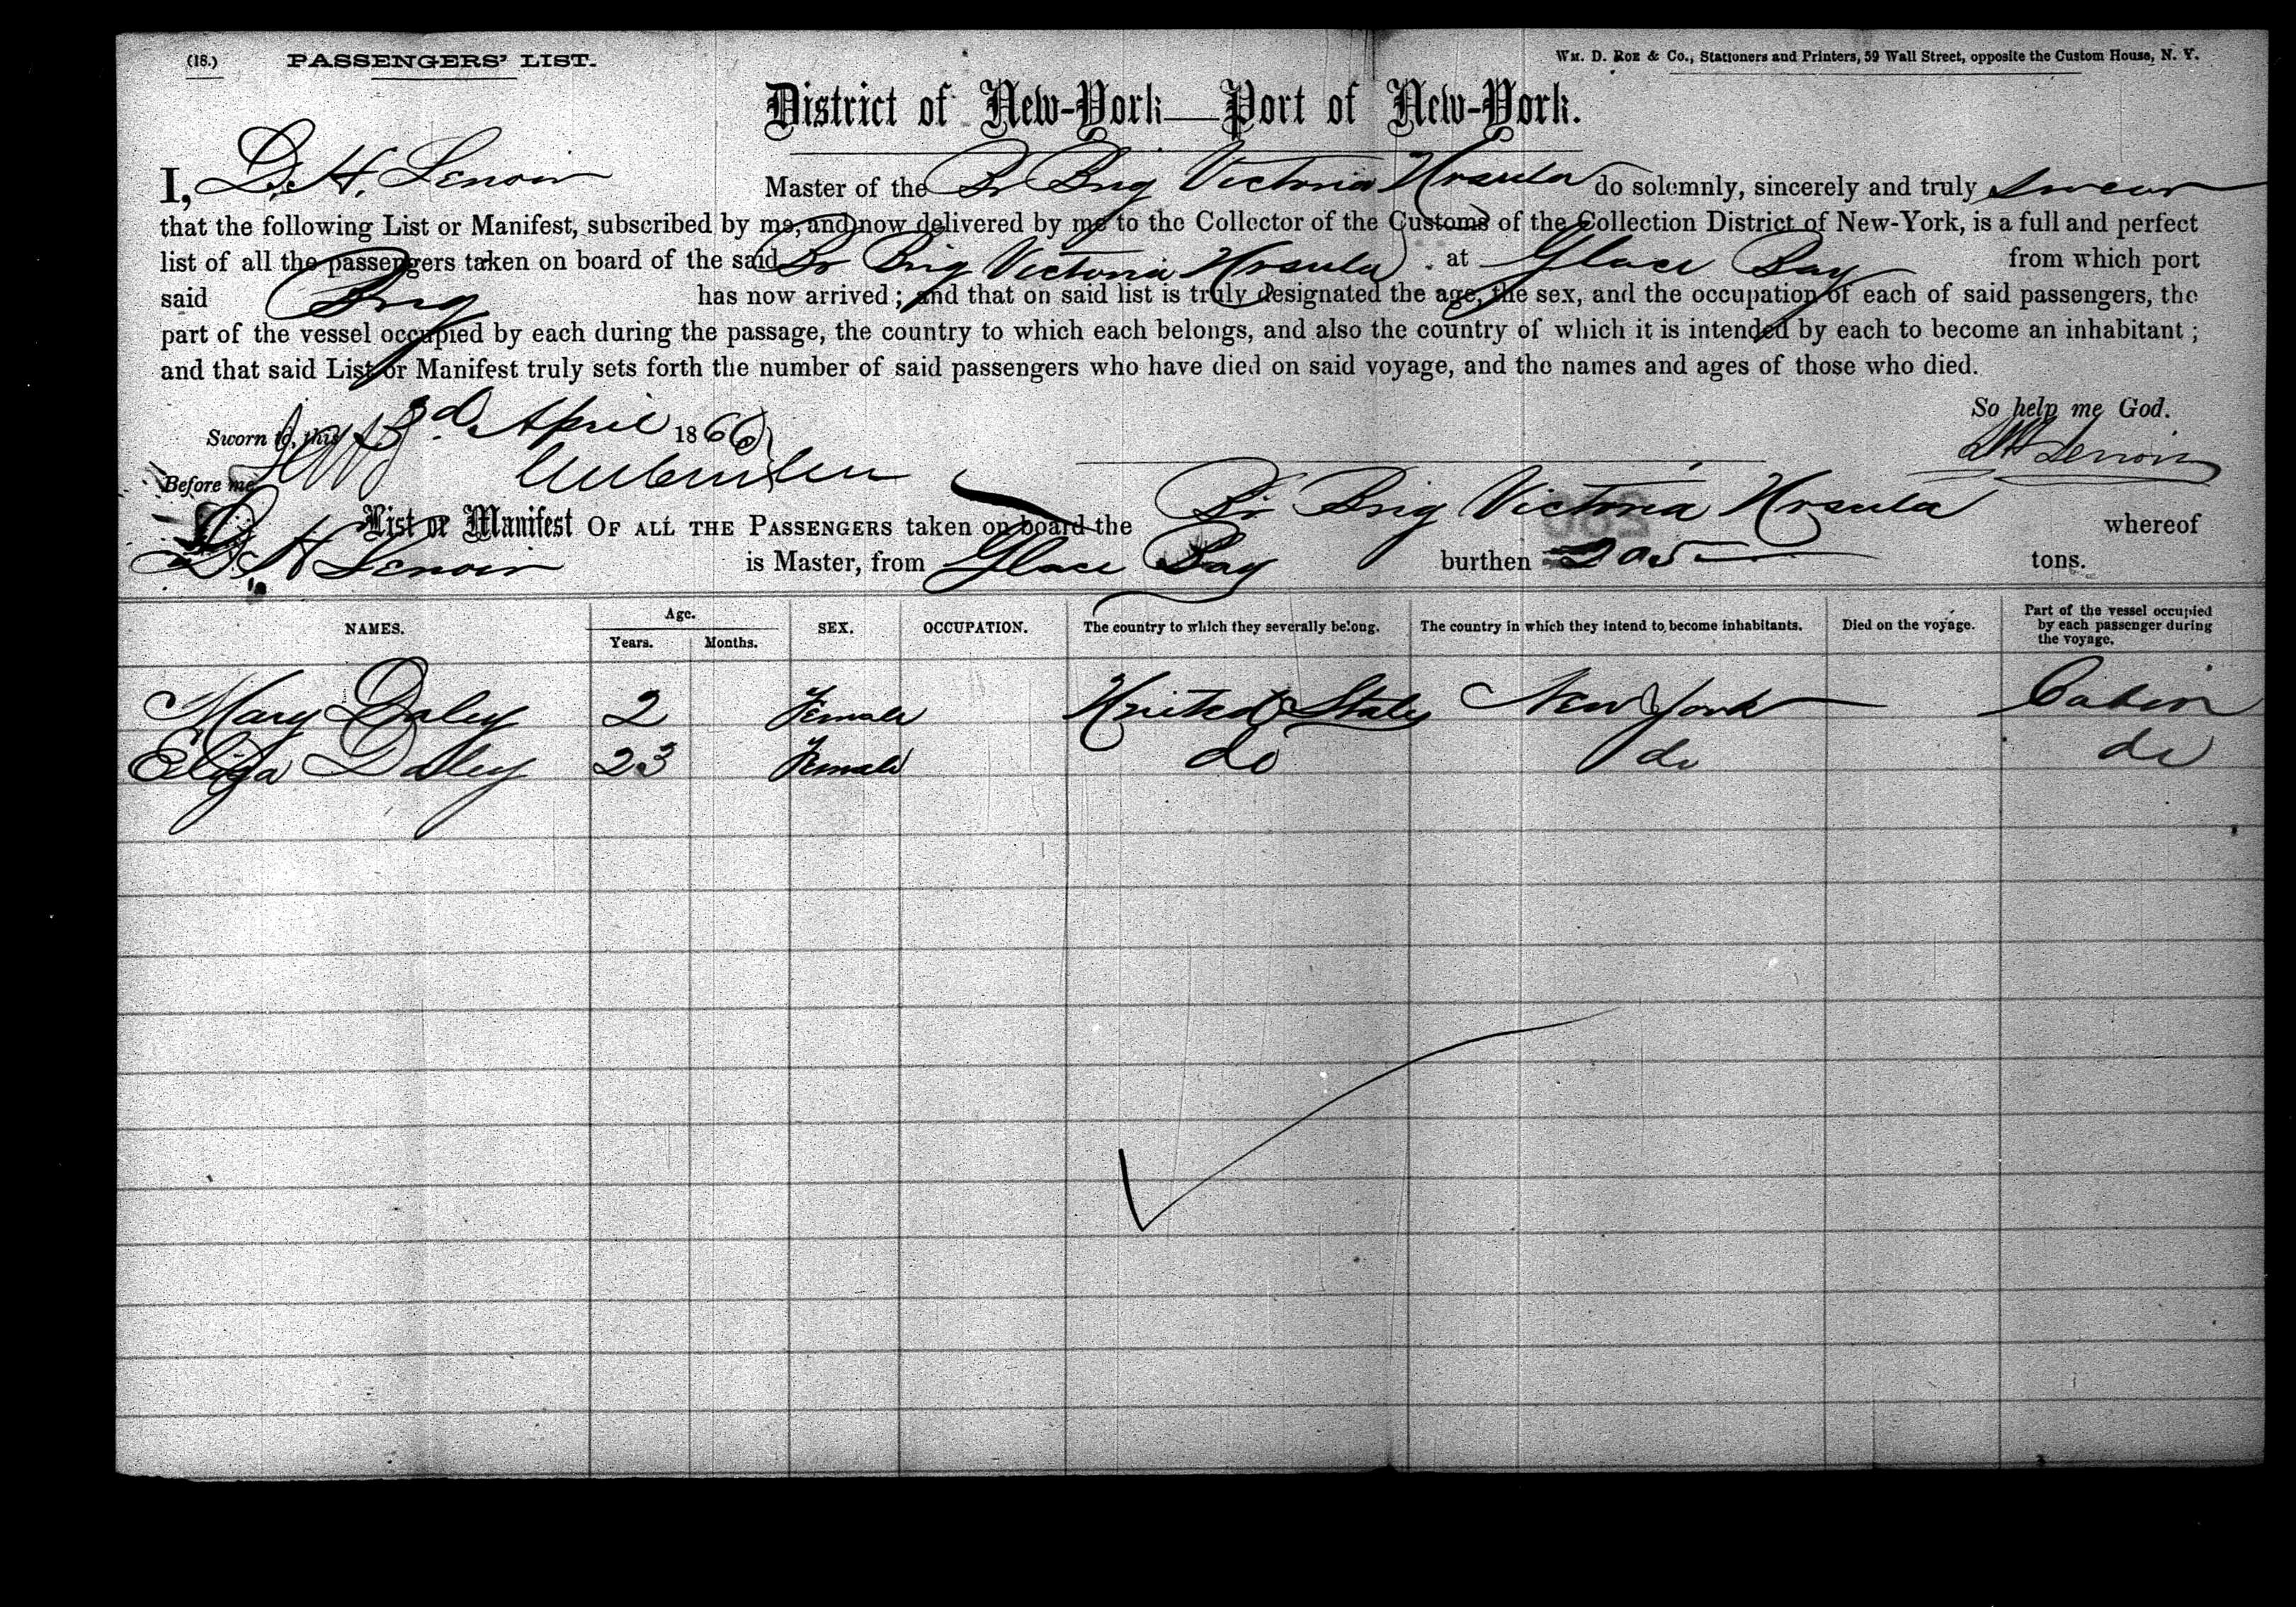 (18.) PASSENGERS' LIST. WM. D. ROE & Co., Stationers and Printers, 59 Wall Street, opposite the Custom House, N. Y.
District of New-York—Port of New-York.
I, D. H. Lenoir Master of the Br Brig Victoria Ursula do solemnly, sincerely and truly swear
that the following List or Manifest, subscribed by me, and now delivered by me to the Collector of the Customs of the Collection District of New-York, is a full and perfect
list of all the passengers taken on board of the said Br Brig Victoria Ursula at Glace Bay from which port
said Brig has now arrived; and that on said list is truly designated the age, the sex, and the occupation of each of said passengers, the
part of the vessel occupied by each during the passage, the country to which each belongs, and also the country of which it is intended by each to become an inhabitant;
and that said List or Manifest truly sets forth the number of said passengers who have died on said voyage, and the names and ages of those who died.
So help me God.
Sworn to, this 3d April 1866
D H Lenoir
Before me
List or Manifest OF ALL THE PASSENGERS taken on board the Br Brig Victoria Ursula whereof
D H Lenoir is Master, from Glace Bay burthen 205 tons.
NAMES. Age. Years. Months. SEX. OCCUPATION. The country to which they severally belong. The country in which they intend to become inhabitants. Died on the voyage. Part of the vessel occupied by each passenger during the voyage.
Mary Daley 2 Female United States New York Cabin
Eliza Daley 23 Female do do do